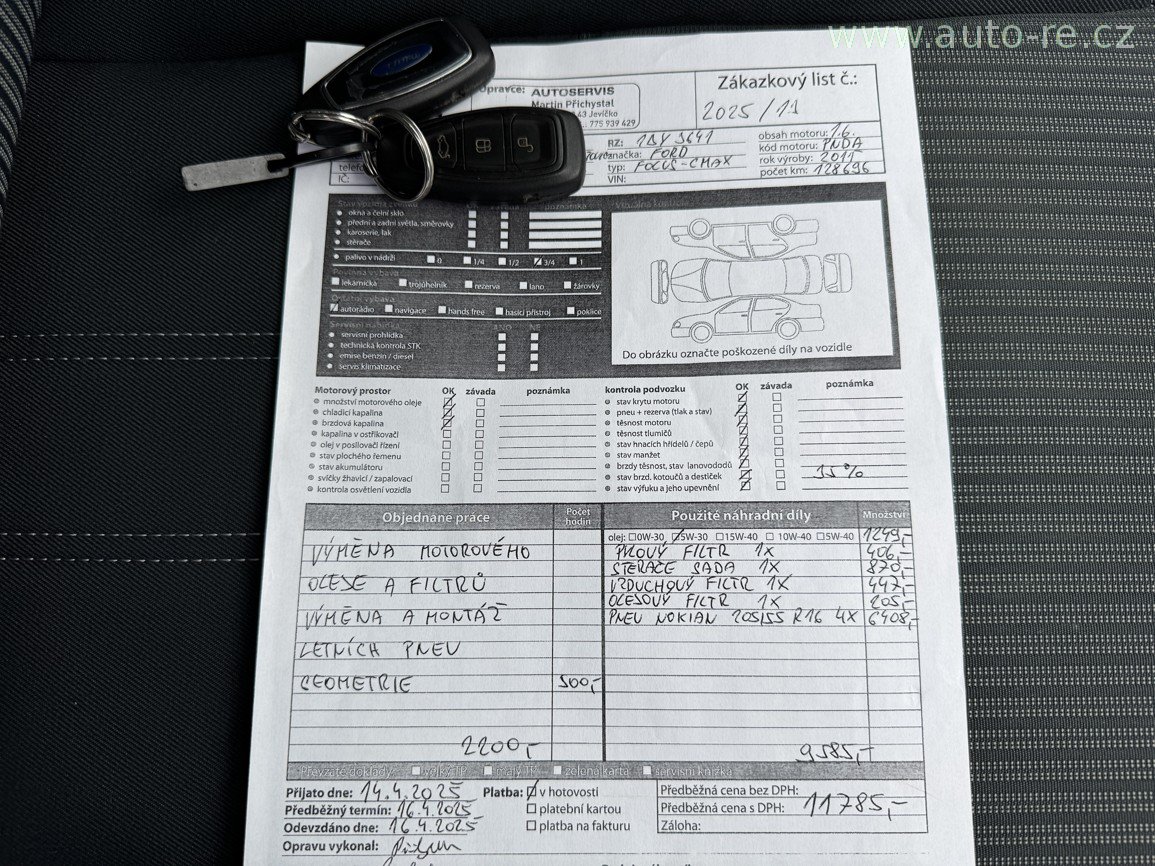 www.auto-re.cz
Opravce: AUTOSERVIS
Martin Přichystal
43 Jevíčko
775 939 429
Zákazkový list č.:
2025/11
RZ: 1BY 3641
značka: FORD
typ: FOCUS-CMAX
VIN:
obsah motoru: 1.6.
kód motoru: PNDA
rok výroby: 2011
počet km: 128696
IČ:
okna a čelní sklo
přední a zadní světla, směrovky
karoserie, lak
stěrače
palivo v nádrži 0 1/4 1/2 3/4 1
lékarnička trojúhelník rezerva lano žárovky
autorádio navigace hands free hasící přístroj poklice
ANO NE
servisní prohlídka
technická kontrola STK
emise benzín / diesel
servis klimatizace
Do obrázku označte poškozené díly na vozidle
Motorový prostor OK závada poznámka
množství motorového oleje
chladicí kapalina
brzdová kapalina
kapalina v ostřikovači
olej v posilovači řízení
stav plochého řemenu
stav akumulátoru
svíčky žhavicí / zapalovací
kontrola osvětlení vozidla
kontrola podvozku OK závada poznámka
stav krytu motoru
pneu + rezerva (tlak a stav)
těsnost motoru
těsnost tlumičů
stav hnacích hřídelů / čepů
stav manžet
brzdy těsnost, stav lanovododů
stav brzd. kotoučů a destiček 35%
stav výfuku a jeho upevnění
Objednané práce Počet hodin
VÝMĚNA MOTOROVÉHO
OLEJE A FILTRŮ
VÝMĚNA A MONTÁŽ
LETNÍCH PNEU
GEOMETRIE 500,-
2200,-
Použité náhradní díly Množství
olej: 0W-30 5W-30 15W-40 10W-40 5W-40 1249,-
PYLOVÝ FILTR 1X 406,-
STĚRAČE SADA 1X 870,-
VZDUCHOVÝ FILTR 1X 447,-
OLEJOVÝ FILTR 1X 205,-
PNEU NOKIAN 205/55 R16 4X 6408,-
9585,-
Převzaté doklady: velký TP malý TP zelená karta servisní knížka
Přijato dne: 14.4.2025
Předběžný termín: 16.4.2025
Odevzdáno dne: 16.4.2025
Opravu vykonal:
Platba: v hotovosti
platební kartou
platba na fakturu
Předběžná cena bez DPH:
Předběžná cena s DPH: 11785,-
Záloha: